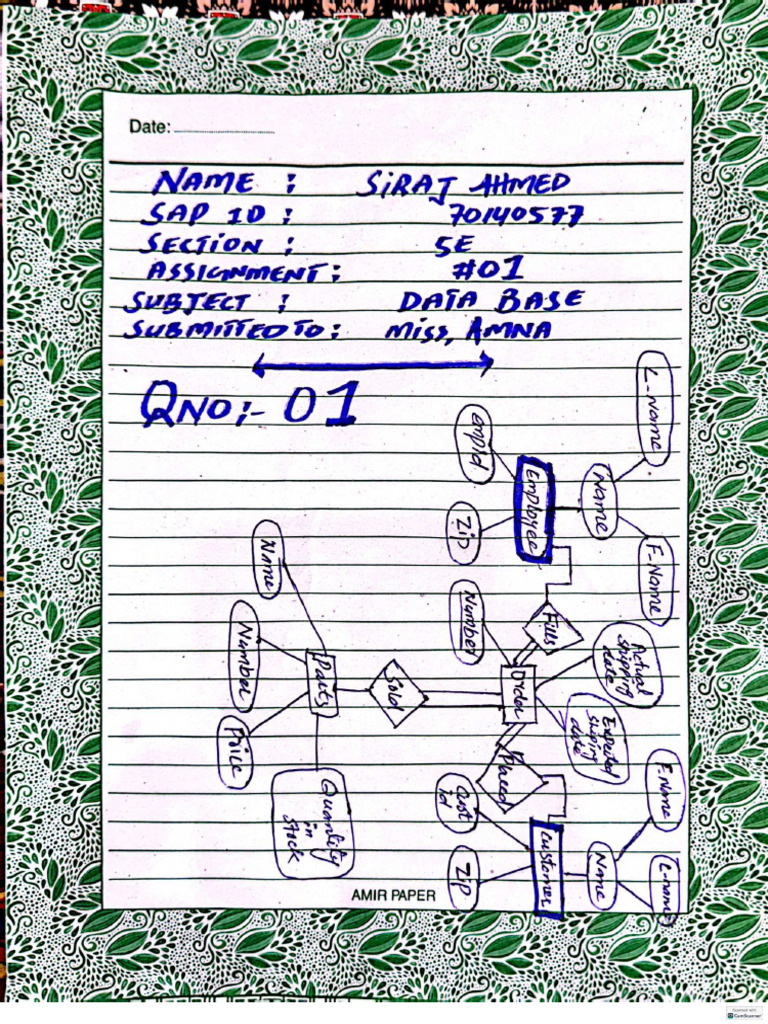 Date:
NAME : SIRAJ AHMED
SAP ID : 70140577
SECTION : 5E
ASSIGNMENT : #01
SUBJECT : DATA BASE
SUBMITTED TO : MISS, AMNA
QNO:- 01
L-Name
EmpId
Employee
Name
Zip
F.Name
Name
Number
Fills
Actual
shipping
date
Number
Parts
Sold
Order
Expected
Shiping
date
Price
Placed
F.Name
Quantity
in
stock
Cust
id
Customer
Name
L-name
Zip
AMIR PAPER
Scanned with
CamScanner